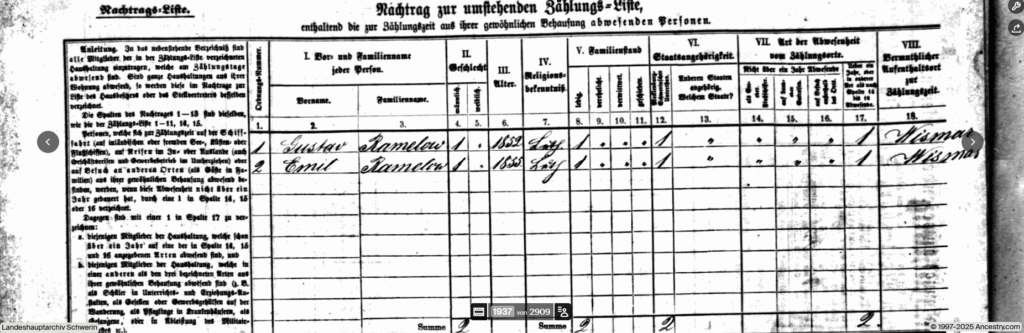 Nachtrags-Liste.
Nachtrag zur umstehenden Zählungs-Liste,
enthaltend die zur Zählungszeit aus ihrer gewöhnlichen Behausung abwesenden Personen.
Anleitung. In das nebenstehende Verzeichniß sind
alle Mitglieder der in der Zählungs-Liste verzeichneten
Haushaltung einzutragen, welche am Zählungstage
abwesend sind. Sind ganze Haushaltungen aus ihrer
Wohnung abwesend, so werden diese im Nachtrage zur
Liste des Hausbesitzers oder des Stellvertreters desselben
verzeichnet.
Die Spalten des Nachtrages 1—13 sind dieselben,
wie die der Zählungs-Liste 1—11, 14, 15.
Personen, welche sich zur Zählungszeit auf der Schiff-
fahrt (auf inländischen oder fremden See-, Küsten- oder
Flußschiffen), auf Reisen im In- oder Auslande (auch
Geschäftsreisen und Gewerbebetrieb im Umherziehen) oder
auf Besuch an anderen Orten (als Gäste in Fa-
milien) aus ihrer gewöhnlichen Behausung abwesend be-
finden, werden, wenn diese Abwesenheit nicht über ein
Jahr gedauert hat, durch eine 1 in Spalte 14, 15
oder 16 verzeichnet.
Dagegen sind mit einer 1 in Spalte 17 zu ver-
zeichnen:
a. diejenigen Mitglieder der Haushaltung, welche schon
über ein Jahr auf eine der in Spalte 14, 15
und 16 angegebenen Arten abwesend sind, und
b. diejenigen Mitglieder der Haushaltung, welche in
einer anderen als den drei bezeichneten Arten aus
ihrer gewöhnlichen Behausung abwesend sind (z. B.
als Schüler in Unterrichts- und Erziehungs-An-
stalten, als Gesellen oder Gewerbsgehülfen auf der
Wanderung, als Pfleglinge in Krankenhäusern, als
Gefangene, oder in Ableistung des Militair-
Ordnungs-Nummer.
I. Vor- und Familienname
jeder Person.
Vorname.
Familienname.
II.
Geschlecht
männlich.
weiblich.
III.
Alter.
IV.
Religions-
bekenntniß.
V. Familienstand
ledig.
verheirathet.
verwittwet.
geschieden.
VI.
Staatsangehörigkeit.
Anderen Staaten
angehörig.
Welchem Staate?
VII. Art der Abwesenheit
vom Zählungsorte.
Nicht über ein Jahr Abwesende
VIII.
Vermuthlicher
Aufenthaltsort
zur
Zählungszeit.
1. 2. 3. 4. 5. 6. 7. 8. 9. 10. 11. 12. 13. 14. 15. 16. 17. 18.
1 Gustav Ramelow 1 . 1852 Luth 1 . . . 1 " " " " 1 Wismar
2 Emil Ramelow 1 . 1855 Luth 1 . . . 1 " " " " 1 Wismar
Summe 2 Summe 2 2 2
1937 von 2909
Landeshauptarchiv Schwerin
© 1997-2025 Ancestry.com